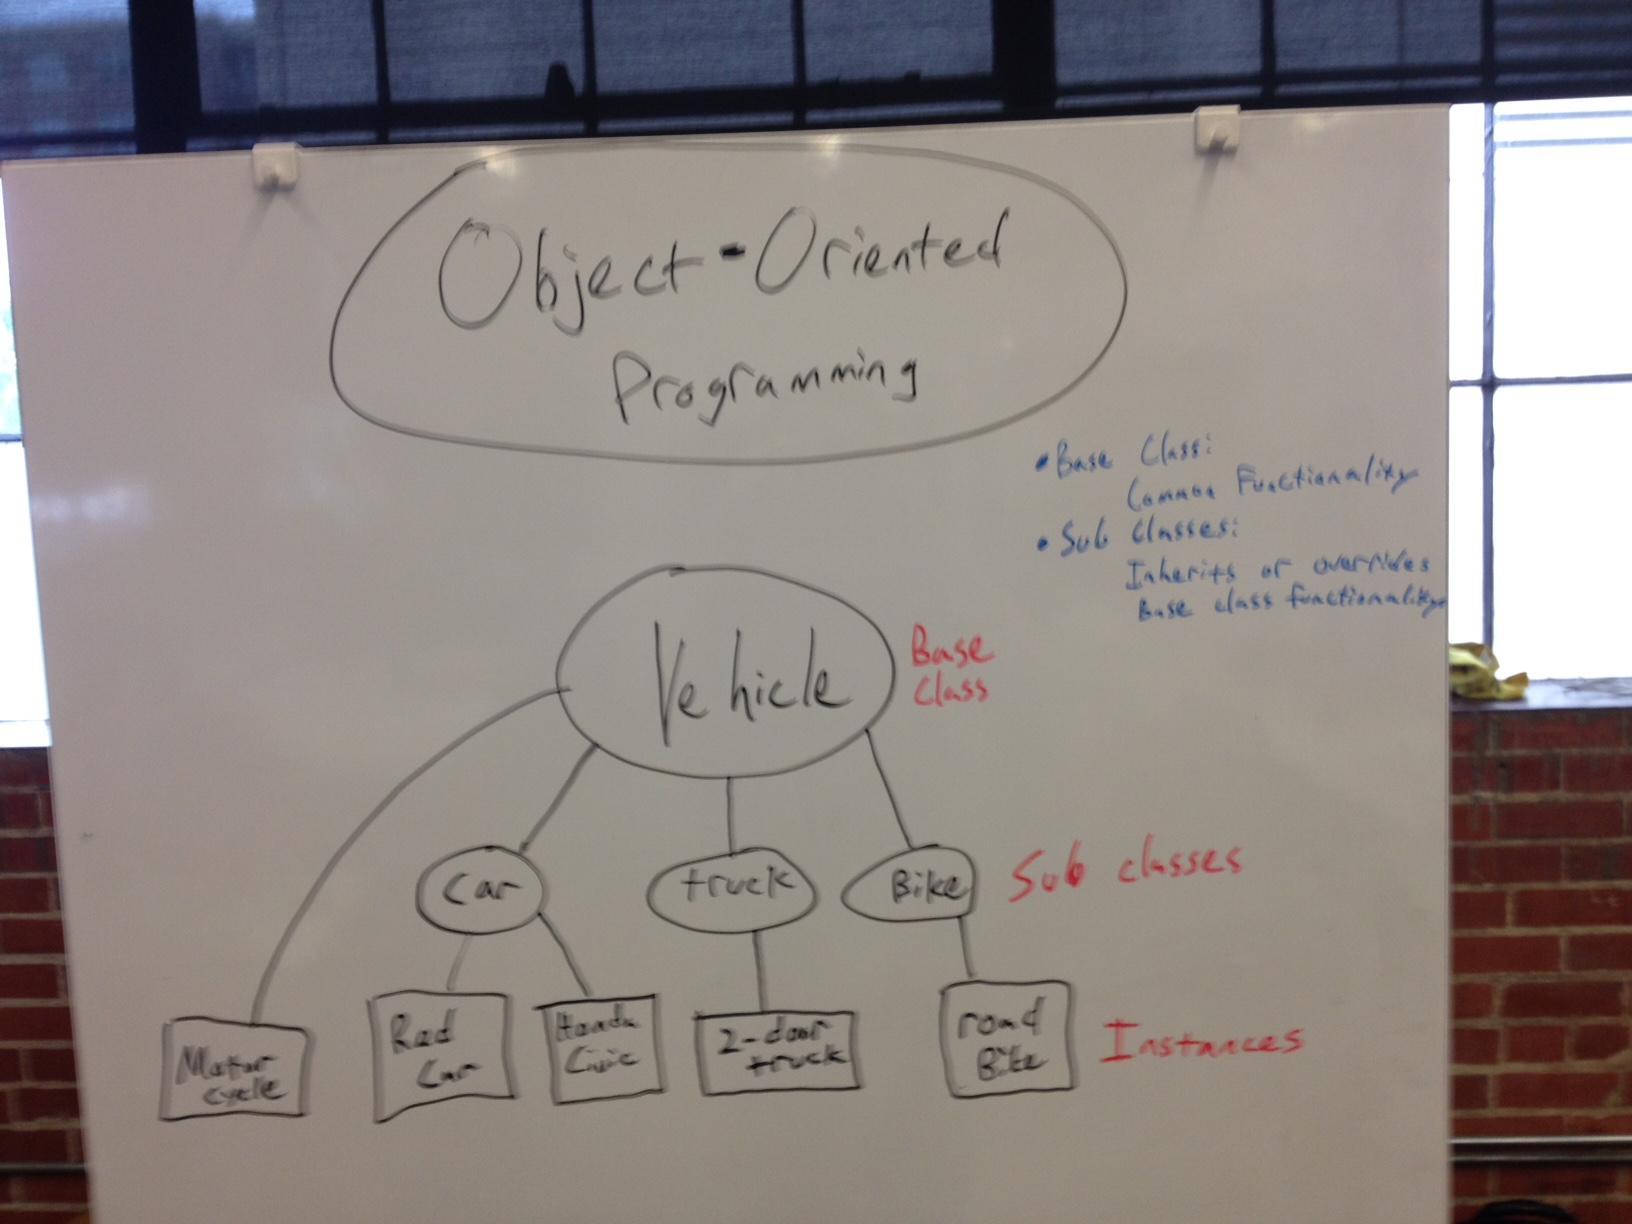 Object-Oriented
Programming
• Base Class:
Common Functionality
• Sub Classes:
Inherits or overrides
Base class functionality
Vehicle
Base
Class
Car
truck
Bike
Sub classes
Motor
cycle
Red
Car
Honda
Civic
2-door
truck
road
Bike
Instances